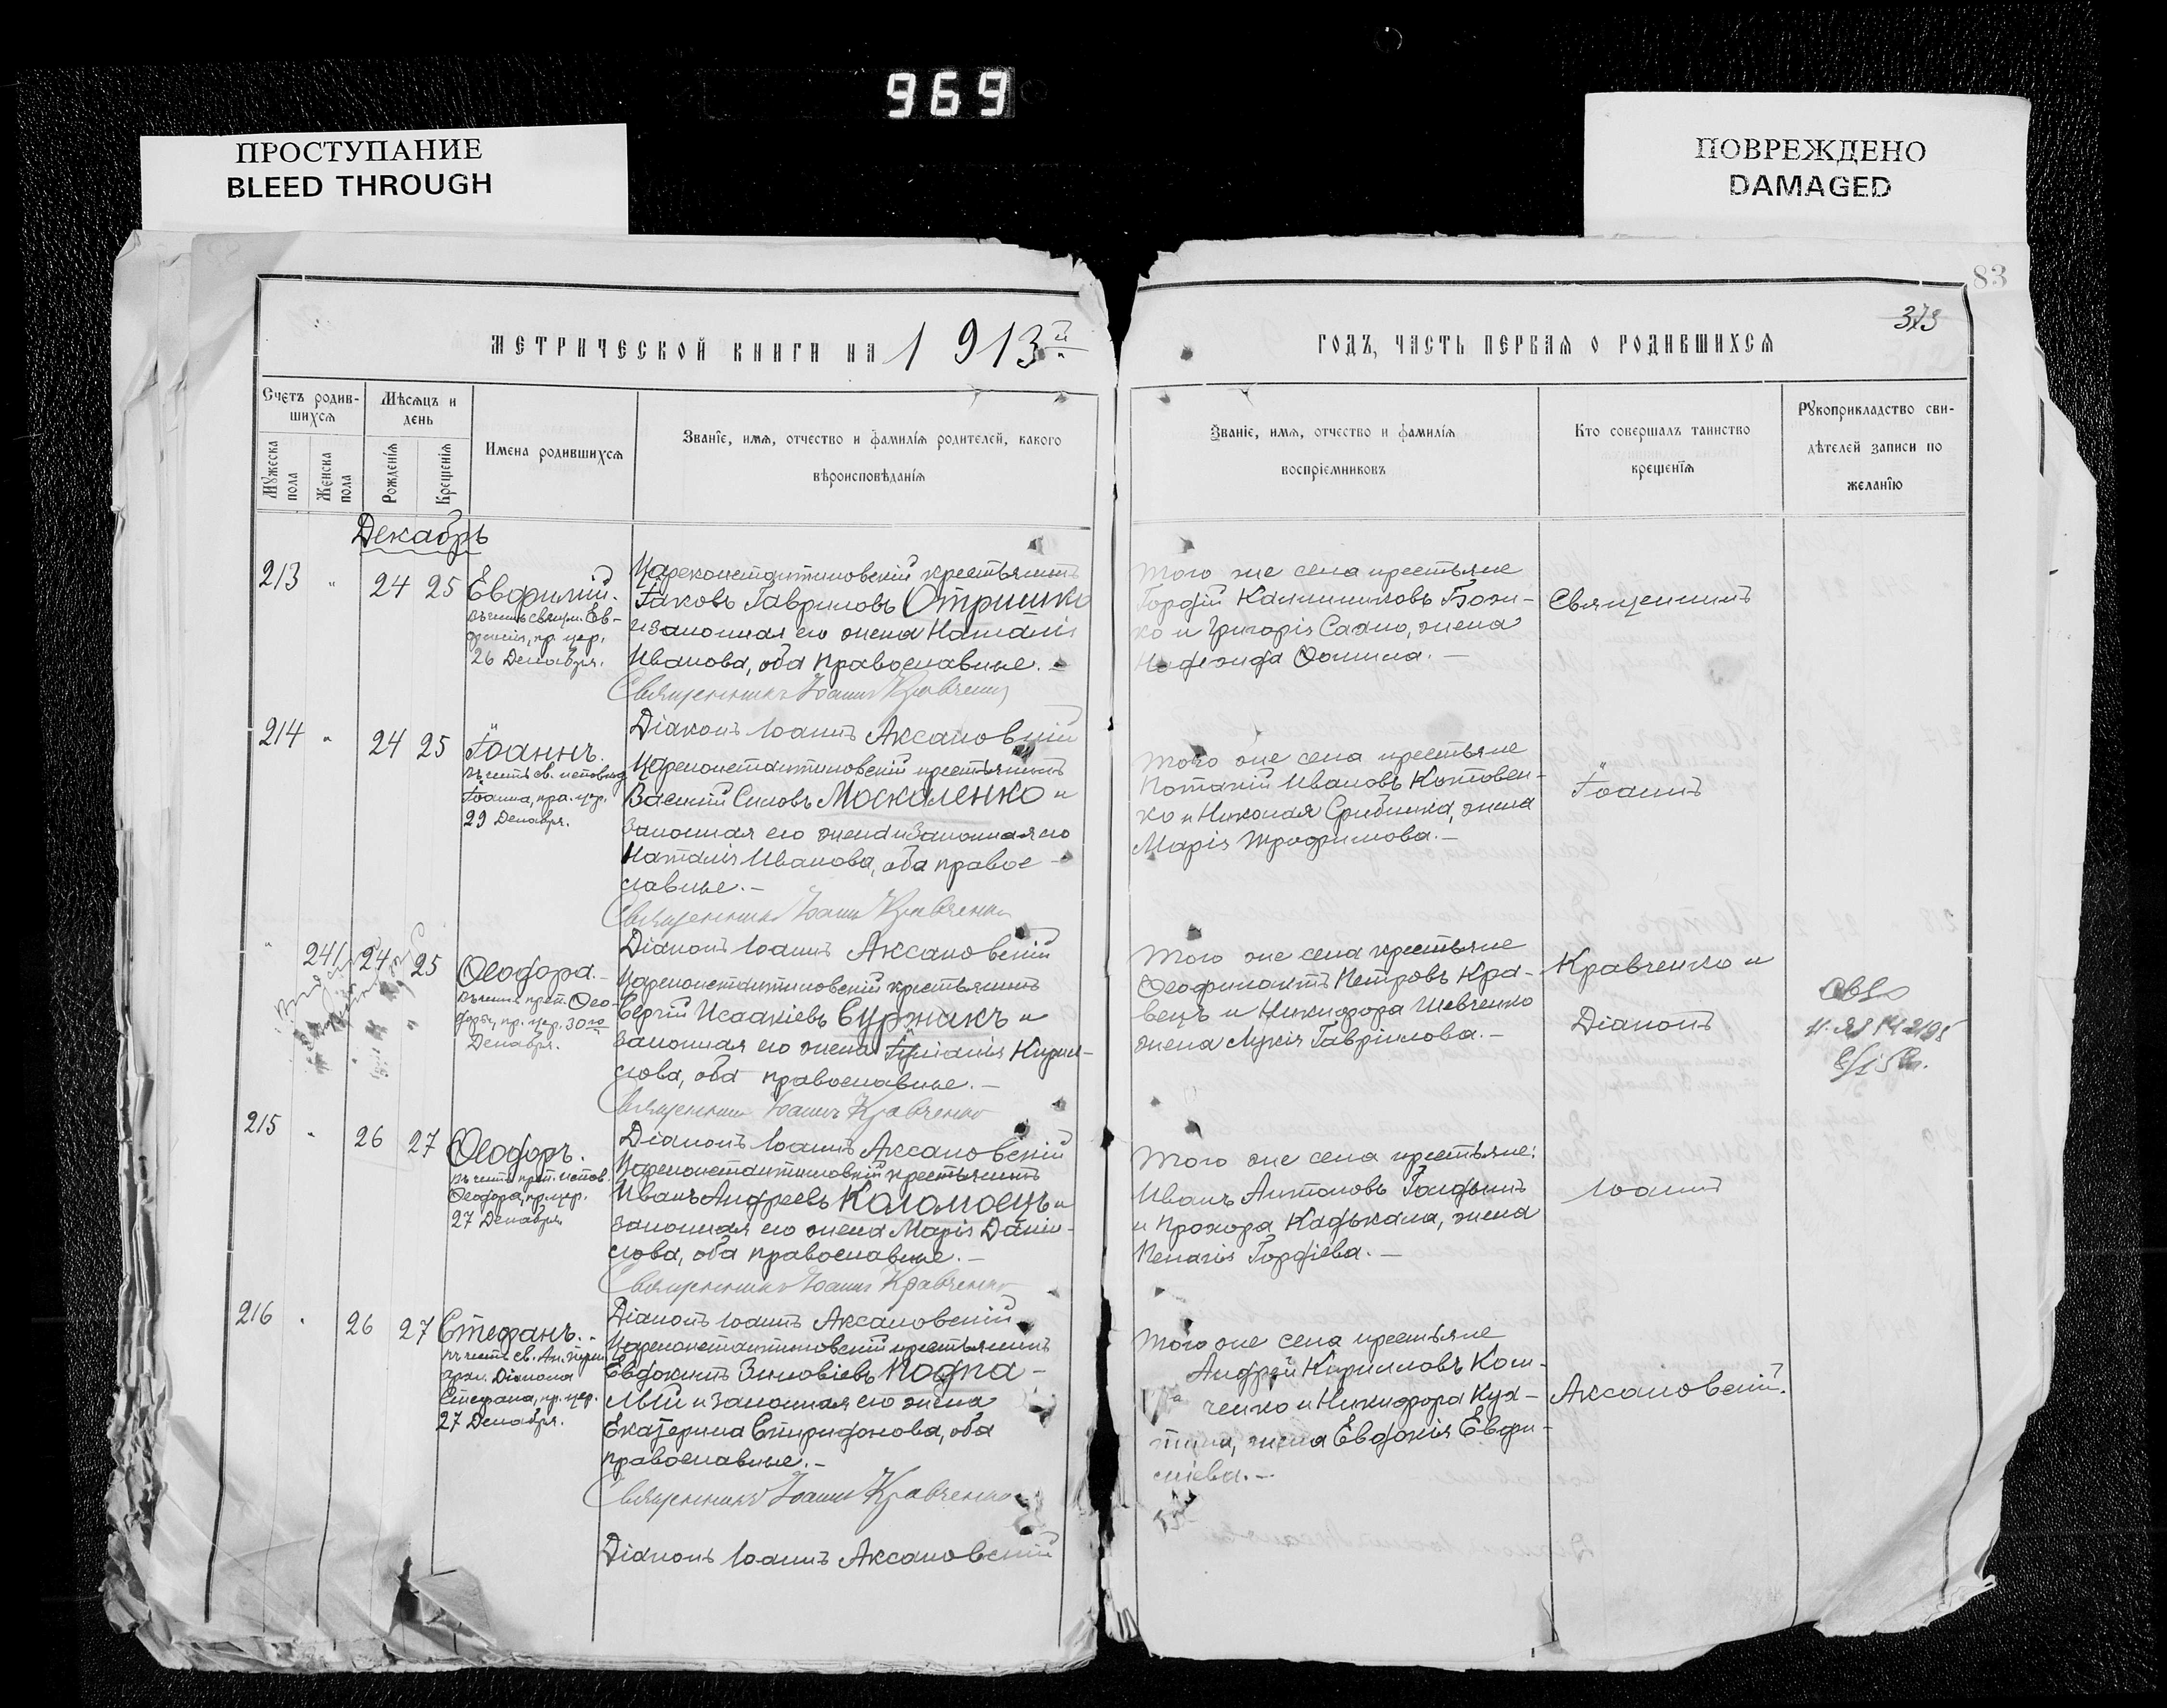 969
ПРОСТУПАНИЕ
BLEED THROUGH
ПОВРЕЖДЕНО
DAMAGED
83
373
МЕТРИЧЕСКОЙ КНИГИ НА 1913й
ГОДЪ, ЧАСТЬ ПЕРВАЯ О РОДИВШИХСЯ
Счетъ родив-
шихся
Мужеска пола
Женска пола
Мѣсяцъ и
день
Рожденія
Крещенія
Имена родившихся
Званіе, имя, отчество и фамилія родителей, какого
вѣроисповѣданія
Званіе, имя, отчество и фамилія
воспріемниковъ
Кто совершалъ таинство
крещенія
Рукоприкладство сви-
дѣтелей записи по
желанію
Декабрь
213 " 24 25 Евфимій.
въ честь свящм. Ев-
фимія, пр. цер.
26 Декабря.
Цареконстантиновскій крестьянинъ
Іаковъ Гавриловъ Отришко
и законная его жена Наталія
Иванова, оба православные. –
Священникъ Іоаннъ Кравченко
Діаконъ Іоаннъ Аксановскій
Того же села крестьяне
Гордій Калинниковъ Божи-
ко и Григорія Сахно, жена
Надежда Фомина. –
Священникъ
214 " 24 25 Іоаннъ.
въ честь св. исповѣд.
Іоанна, пра. цер.
29 Декабря.
Цареконстантиновскій крестьянинъ
Василій Силовъ Москаленко и
законная его жена и законная его
Наталія Иванова, оба право-
славные. –
Священникъ Іоаннъ Кравченко
Діаконъ Іоаннъ Аксановскій
Того же села крестьяне
Потапій Ивановъ Котовен-
ко и Николая Срибника, жена
Марія Трофимова. –
Іоаннъ
" 241 24 25 Ѳеодора. –
въ честь преп. Ѳео-
доры, пр. цер. 30го
Декабря.
Цареконстантиновскій крестьянинъ
Сергій Исаакіевъ Суржикъ и
законная его жена Іуліанія Кирил-
лова, оба православные. –
Священникъ Іоаннъ Кравченко
Діаконъ Іоаннъ Аксановскій
Того же села крестьяне
Ѳеофилактъ Петровъ Кра-
вецъ и Никифора Шевченко
жена Лукія Гавріилова. –
Кравченко и
Діаконъ
215 " 26 27 Ѳеодоръ.
въ честь преп. испов.
Ѳеодора, пр. цер.
27 Декабря
Цареконстантиновскій крестьянинъ
Иванъ Андреевъ Коломоецъ и
законная его жена Марія Даніи-
лова, оба православные. –
Священникъ Іоаннъ Кравченко
Діаконъ Іоаннъ Аксановскій
Того же села крестьяне:
Иванъ Антоновъ
и Прохора Кадькала, жена
Пелагія Гордіева. –
Іоаннъ
216 " 26 27 Стефанъ. –
въ честь св. Ап. перв.
Діакона
Стефана, пр. цер.
27 Декабря.
Цареконстантиновскій крестьянинъ
Евдокимъ Зиновіевъ Подпа-
лый и законная его жена
Екатерина Спиридонова, оба
православные. –
Священникъ Іоаннъ Кравченко
Діаконъ Іоаннъ Аксановскій
Того же села крестьяне
Андрей Кирилловъ
ченко и Никифора
жена Евдокія Евфи-
міева. –
Аксановскій.